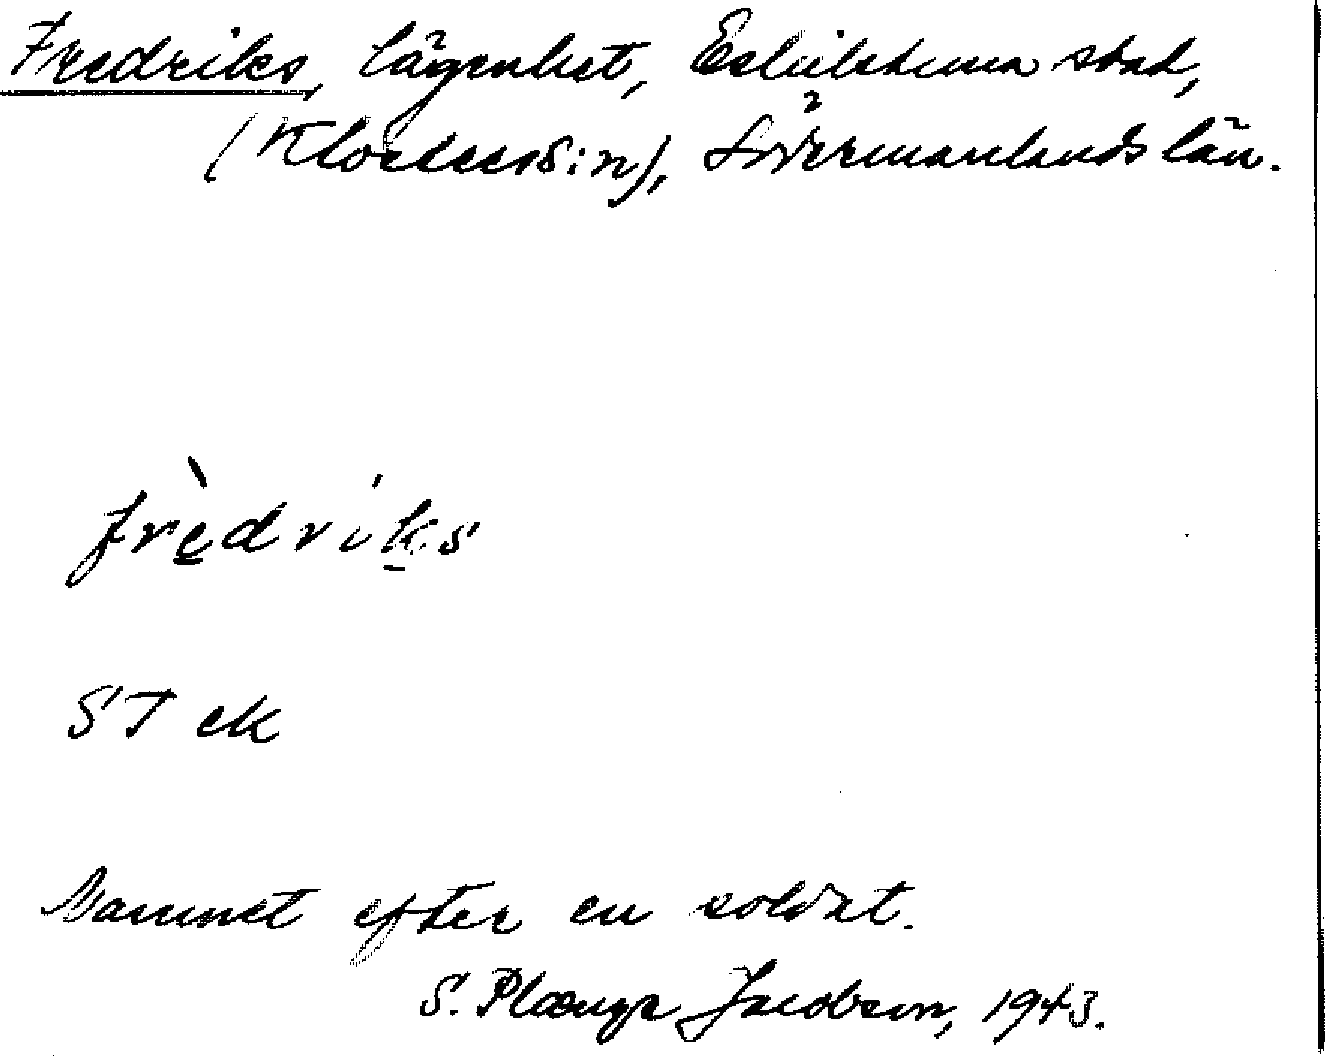 Fredriks, lägenhet, Eskilstuna stad,
(Klosters sn), Södermanlands län.
frèdriks
ST ek
Namnet efter en soldat.
S. Plænge Jacobson, 1943.